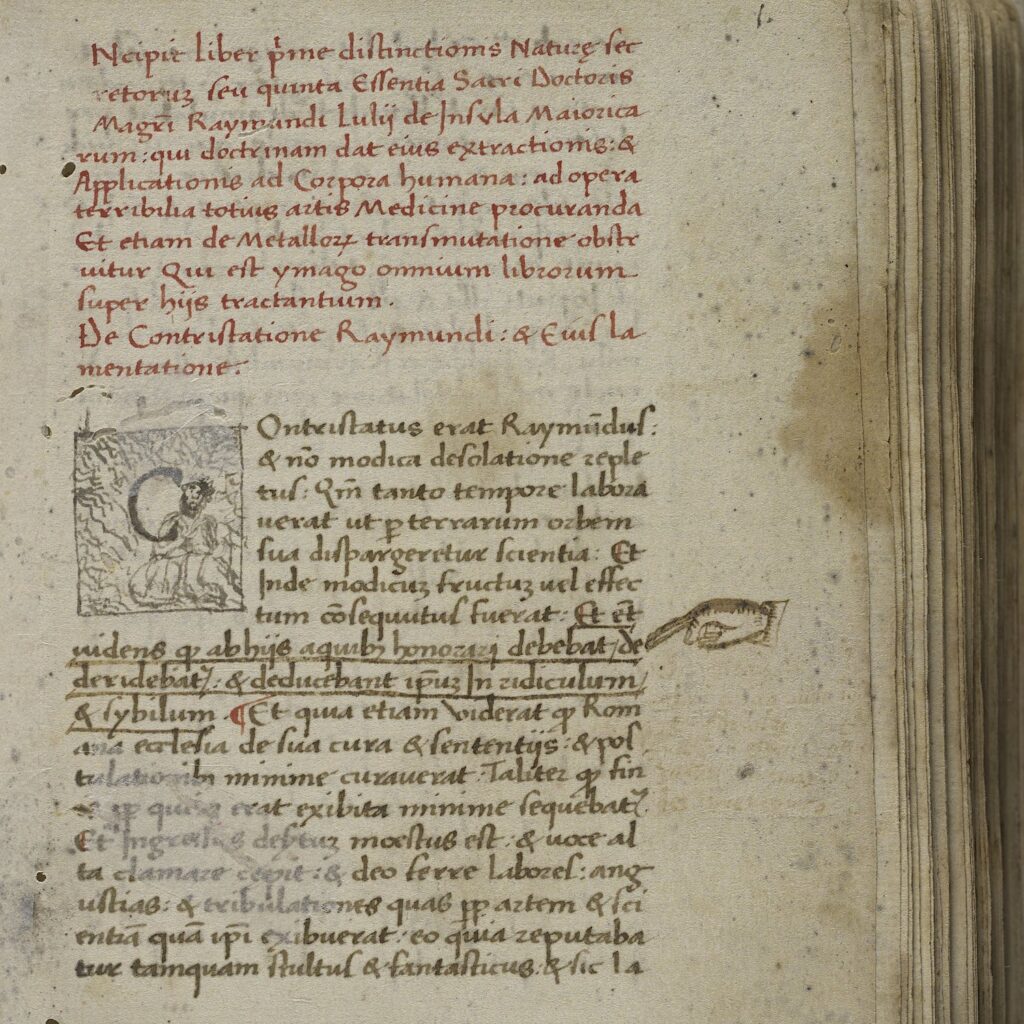 1.
Ncipit liber p̄me distinctionis Naturę sec
retoruꝫ seu quinta Essentia Sacri Doctoris
Magrī Raymundi Lulij de Insula Maiorica
rum: qui doctrinam dat eius extractionis: &
Applicationis ad Corpora humana: ad opera
terribilia totius artis Medicine procuranda
Et etiam de Metalloꝝ transmutatione obstr
uitur Qui est ymago omnium librorum
super hijs tractantium.
De Contristatione Raymundi: & Eius la
mentatione:
Contristatus erat Raymūdus:
& nō modica desolatione reple
tus: Qm̄ tanto tempore labora
verat ut ꝑ terrarum orbem
sua dispargeretur scientia: Et
Inde modicuꝫ fructuꝫ vel effec
tum cōsequutus fuerat: Et et̄
uidens ꝙ ab hijs a quibꝫ honorari debebat, de
deridebat᷑: & deducebant ip̄uꝫ In ridiculum,
& sybilum. ¶ Et quia etiam viderat ꝙ Rom
ana ecclesia de sua cura & sententijs: & pos
tulationibꝫ minime curaverat: Taliter ꝙ fin
erat exibita minime sequebat᷑.
Et Ingressus moestus est: & voce al
ta clamare cepit: & deo ferre labores: ang
ustias: & tribulationes quas ꝓp artem & sci
entiā quā ip̄i exibuerat: eo quia reputaba
tur tamquam stultus & fantasticus: & sic la